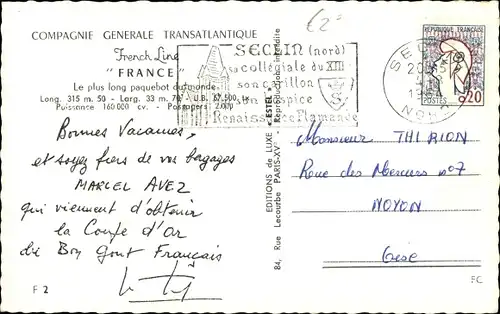 €2
COMPAGNIE GENERALE TRANSATLANTIQUE
French Line
"FRANCE"
Le plus long paquebot du monde
Long. 315 m. 50 - Larg. 33 m. 70 - U.B. 67.500 tx
Puissance 160 000 cv. - Passagers 2.000
Bonnes Vacances,
et soyez fiers de vos bagages
MARCEL AVEZ
qui viennent d'obtenir
la Coupe d'Or
du Bon Gout Français
F 2
EDITIONS de LUXE ESTEL
84, Rue Lecourbe PARIS-XVe - Reproductions interdite
SECLIN (nord)
sa collégiale du XIII
son carillon
son hospice
Renaissance Flamande
SECLIN
NORD
REPUBLIQUE FRANÇAISE
POSTES
0,20
Monsieur THIRION
Rue des Merciers n°7
NOYON
Oise
FC